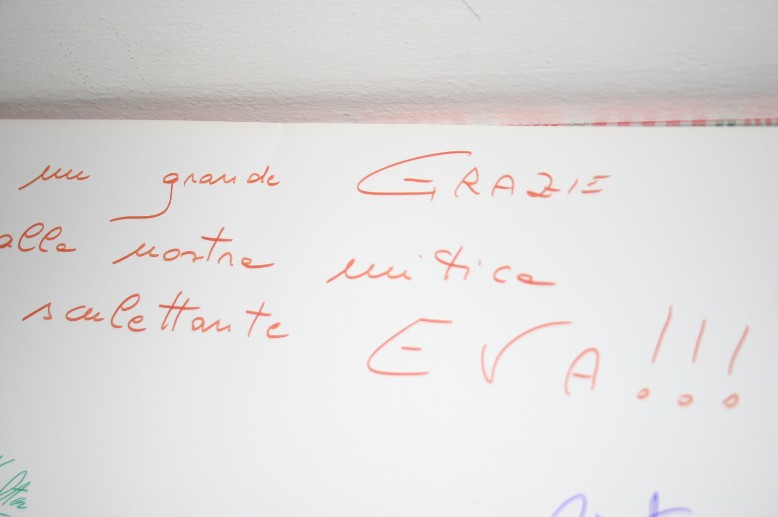 un grande GRAZIE
alla nostra mitica
sculettante EVA!!!